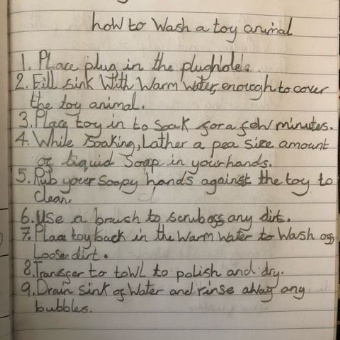 how to wash a toy animal
1. Place plug in the plughole.
2. Fill sink with warm water, enough to cover
the toy animal.
3. Place toy in to soak for a few minutes.
4. While soaking, lather a pea size amount
of liquid soap in your hands.
5. Rub your soapy hands against the toy to
clean.
6. Use a brush to scrub off any dirt.
7. Place toy back in the warm water to wash off
loose dirt.
8. Transfer to towl to polish and dry.
9. Drain sink of water and rinse away any
bubbles.